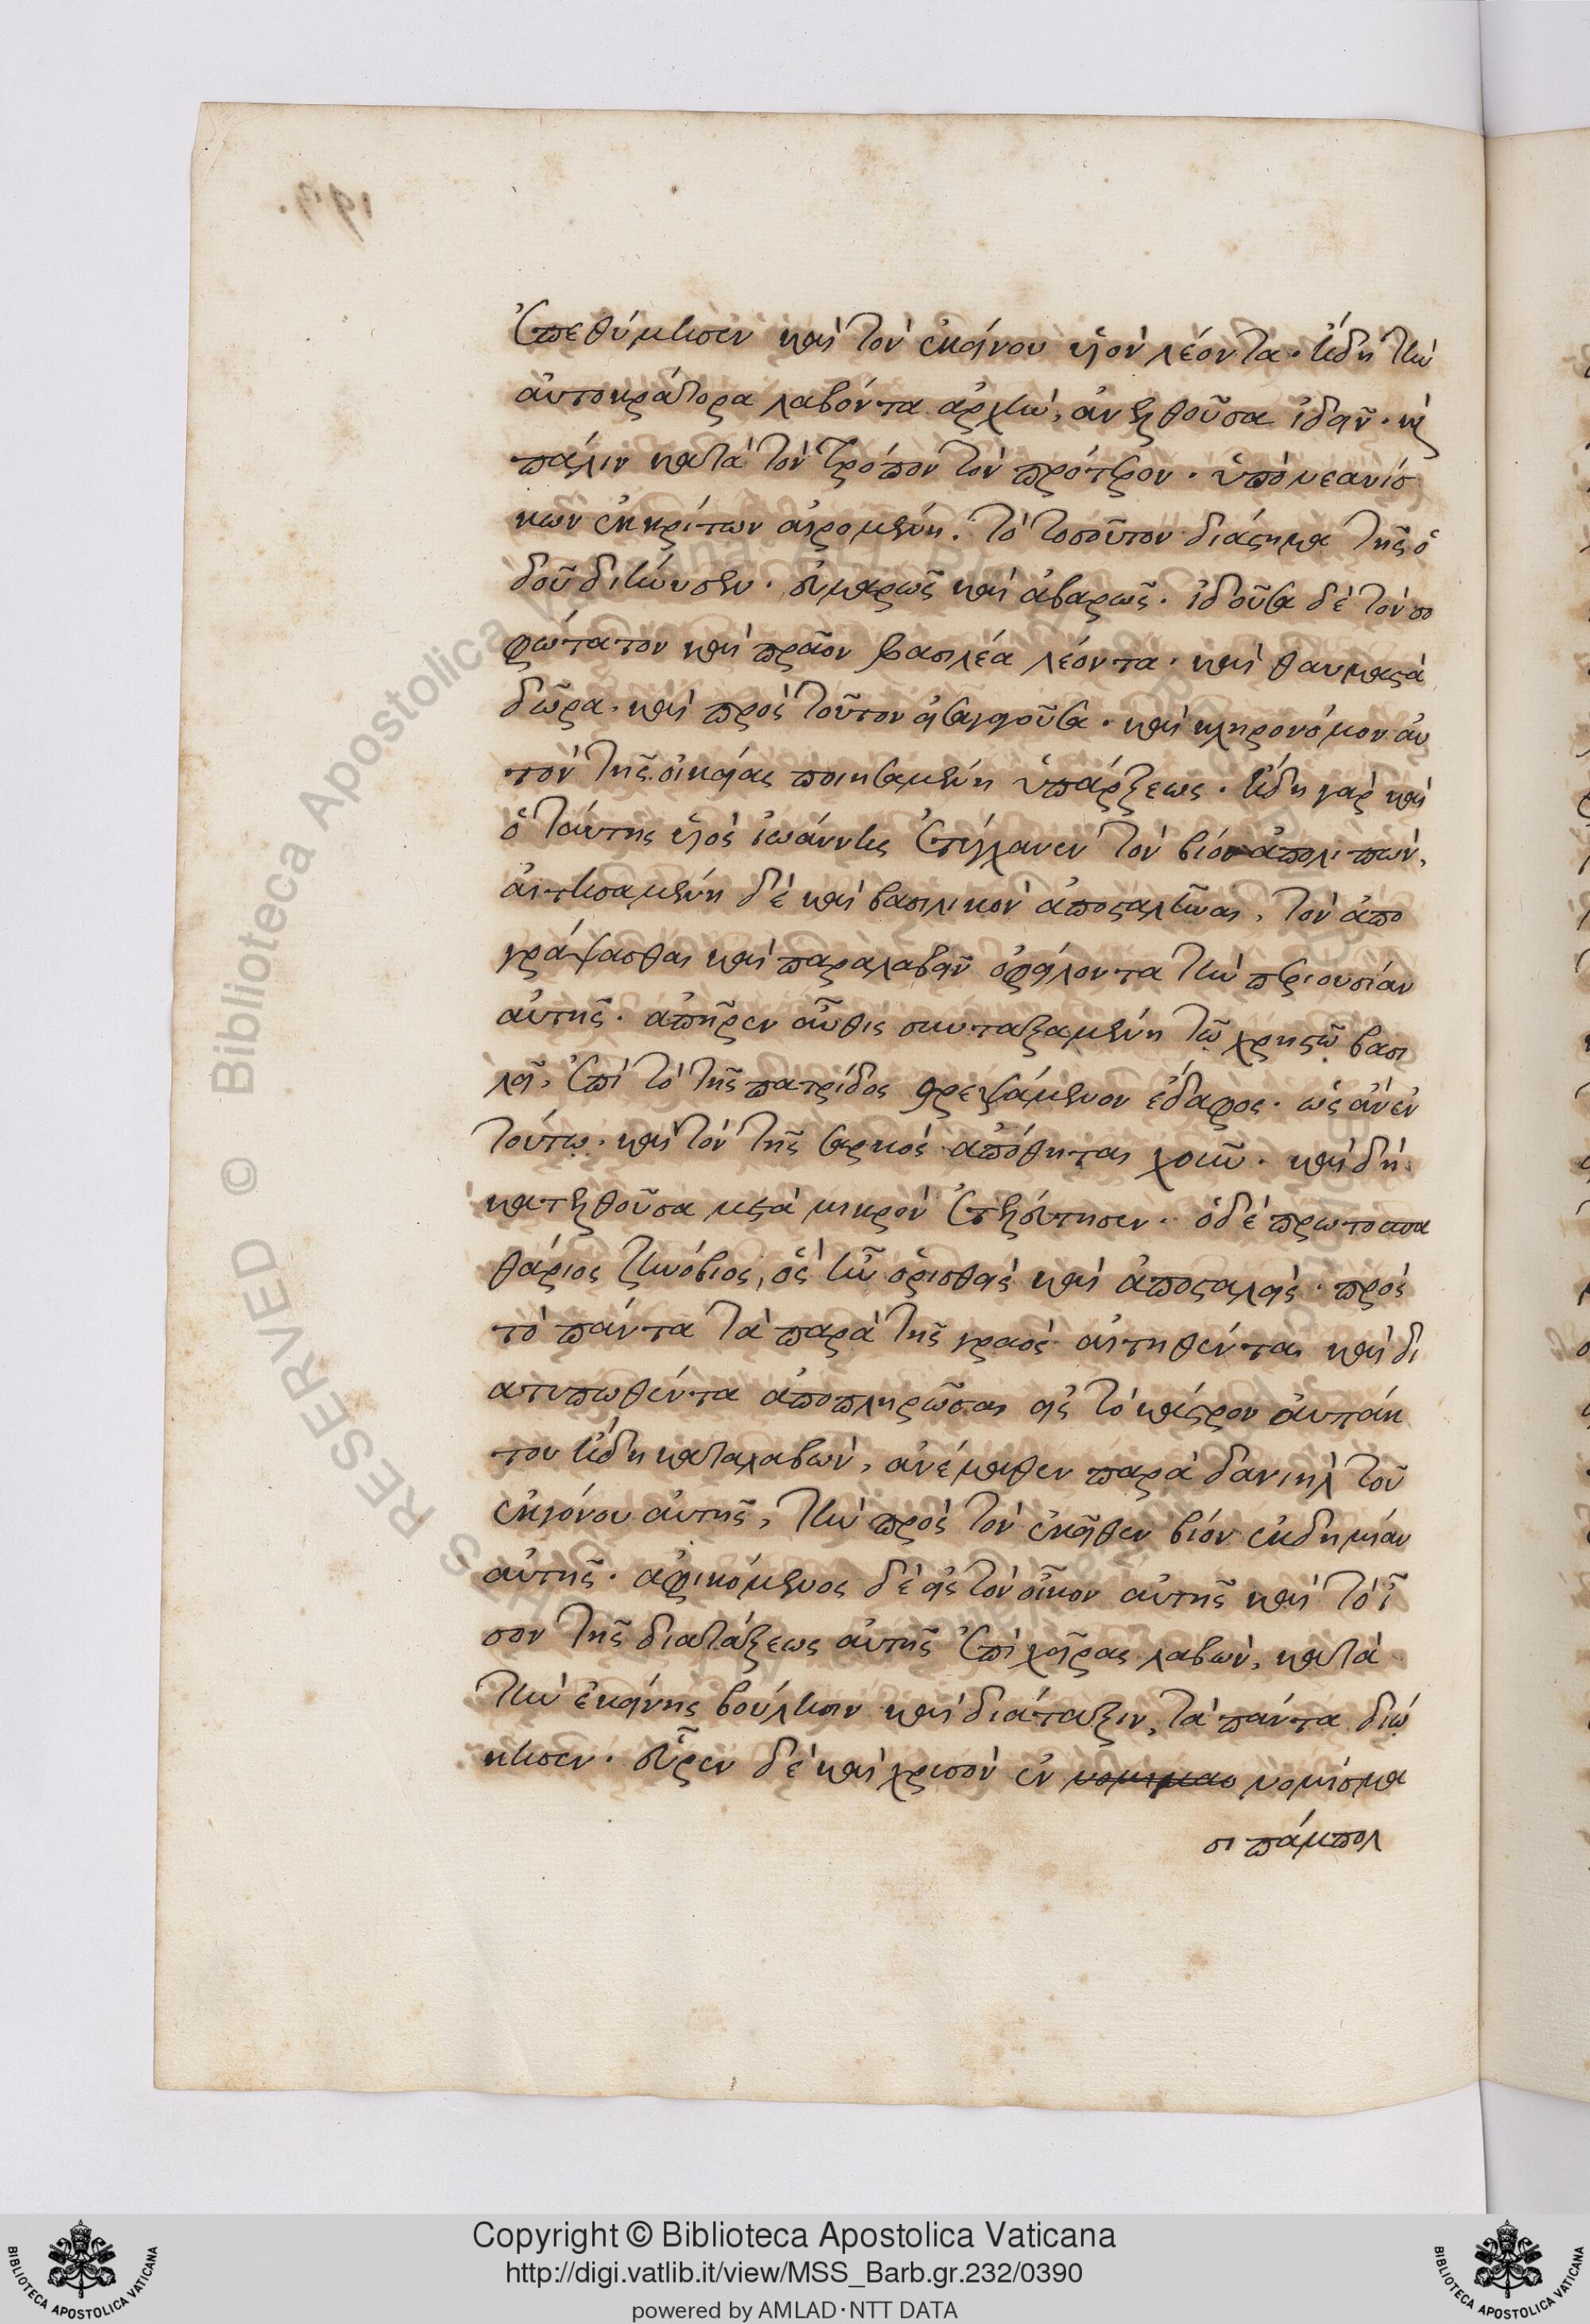 ἐπεθύμησεν καὶ τὸν ἐκείνου υἱὸν λέοντα. ἤδη τὴν
αὐτοκράτορα λαβόντα ἀρχὴν, ἀνελθοῦσα ἰδεῖν. καὶ
πάλιν κατὰ τὸν τρόπον τὸν πρότερον. ὑπὸ νεανίσ
κων ἐκκρίτων αἰρομένη. τὸ τοσοῦτον διάστημα τῆς ὁ
δοῦ διήνυσεν. εὐμαρῶς καὶ ἀβαρῶς. ἰδοῦσα δὲ τὸν σο
φώτατον καὶ πρᾶον βασιλέα λέοντα. καὶ θαυμαστὰ
δῶρα. καὶ πρὸς τοῦτον εἰσαγαγοῦσα. καὶ κληρονόμον αὐ
τὸν τῆς οἰκείας ποιησαμένη ὑπάρξεως. ἤδη γὰρ καὶ
ὁ ταύτης υἱὸς ἰωάννης ἐτύγχανεν τὸν βίον ἀπολιπών,
αἰτησαμένη δὲ καὶ βασιλικὸν ἀποσταλῆναι, τὸν ἀπο
γράψασθαι καὶ παραλαβεῖν ὀφείλοντα τὴν περιουσίαν
αὐτῆς. ἀπῆρεν αὖθις συνταξαμένη τῷ χρηστῷ βασι
λεῖ, ἐπὶ τὸ τῆς πατρίδος θρεψάμενον ἔδαφος. ὡς ἂν ἐν
τούτῳ. καὶ τὸν τῆς σαρκὸς ἀπόθηται χοῦν. καὶ δὴ
κατελθοῦσα μετὰ μικρὸν ἐτελεύτησεν. ὁ δὲ πρωτοσπα
θάριος ζηνόβιος, ὃς ἦν ὁρισθεὶς καὶ ἀποσταλεὶς. πρὸς
τὸ πάντα τὰ παρὰ τῆς γραὸς αἰτηθέντα καὶ δι
ατυπωθέντα ἀποπληρῶσαι εἰς τὸ κάστρον ναυπάκ
του ἤδη καταλαβὼν, ἀνέμαθεν παρὰ δανιὴλ τοῦ
ἐκγόνου αὐτῆς, τὴν πρὸς τὸν ἐκεῖθεν βίον ἐκδημίαν
αὐτῆς. ἀφικόμενος δὲ εἰς τὸν οἶκον αὐτῆς καὶ τὸ ἶ
σον τῆς διατάξεως αὐτῆς ἐπὶ χεῖρας λαβὼν, κατὰ
τὴν ἐκείνης βούλησιν καὶ διάταξιν, τὰ πάντα διῴ
κησεν. εὗρεν δὲ καὶ χρυσὸν ἐν νομίσμα
σι πάμπολ
Copyright © Biblioteca Apostolica Vaticana
http://digi.vatlib.it/view/MSS_Barb.gr.232/0390
powered by AMLAD·NTT DATA